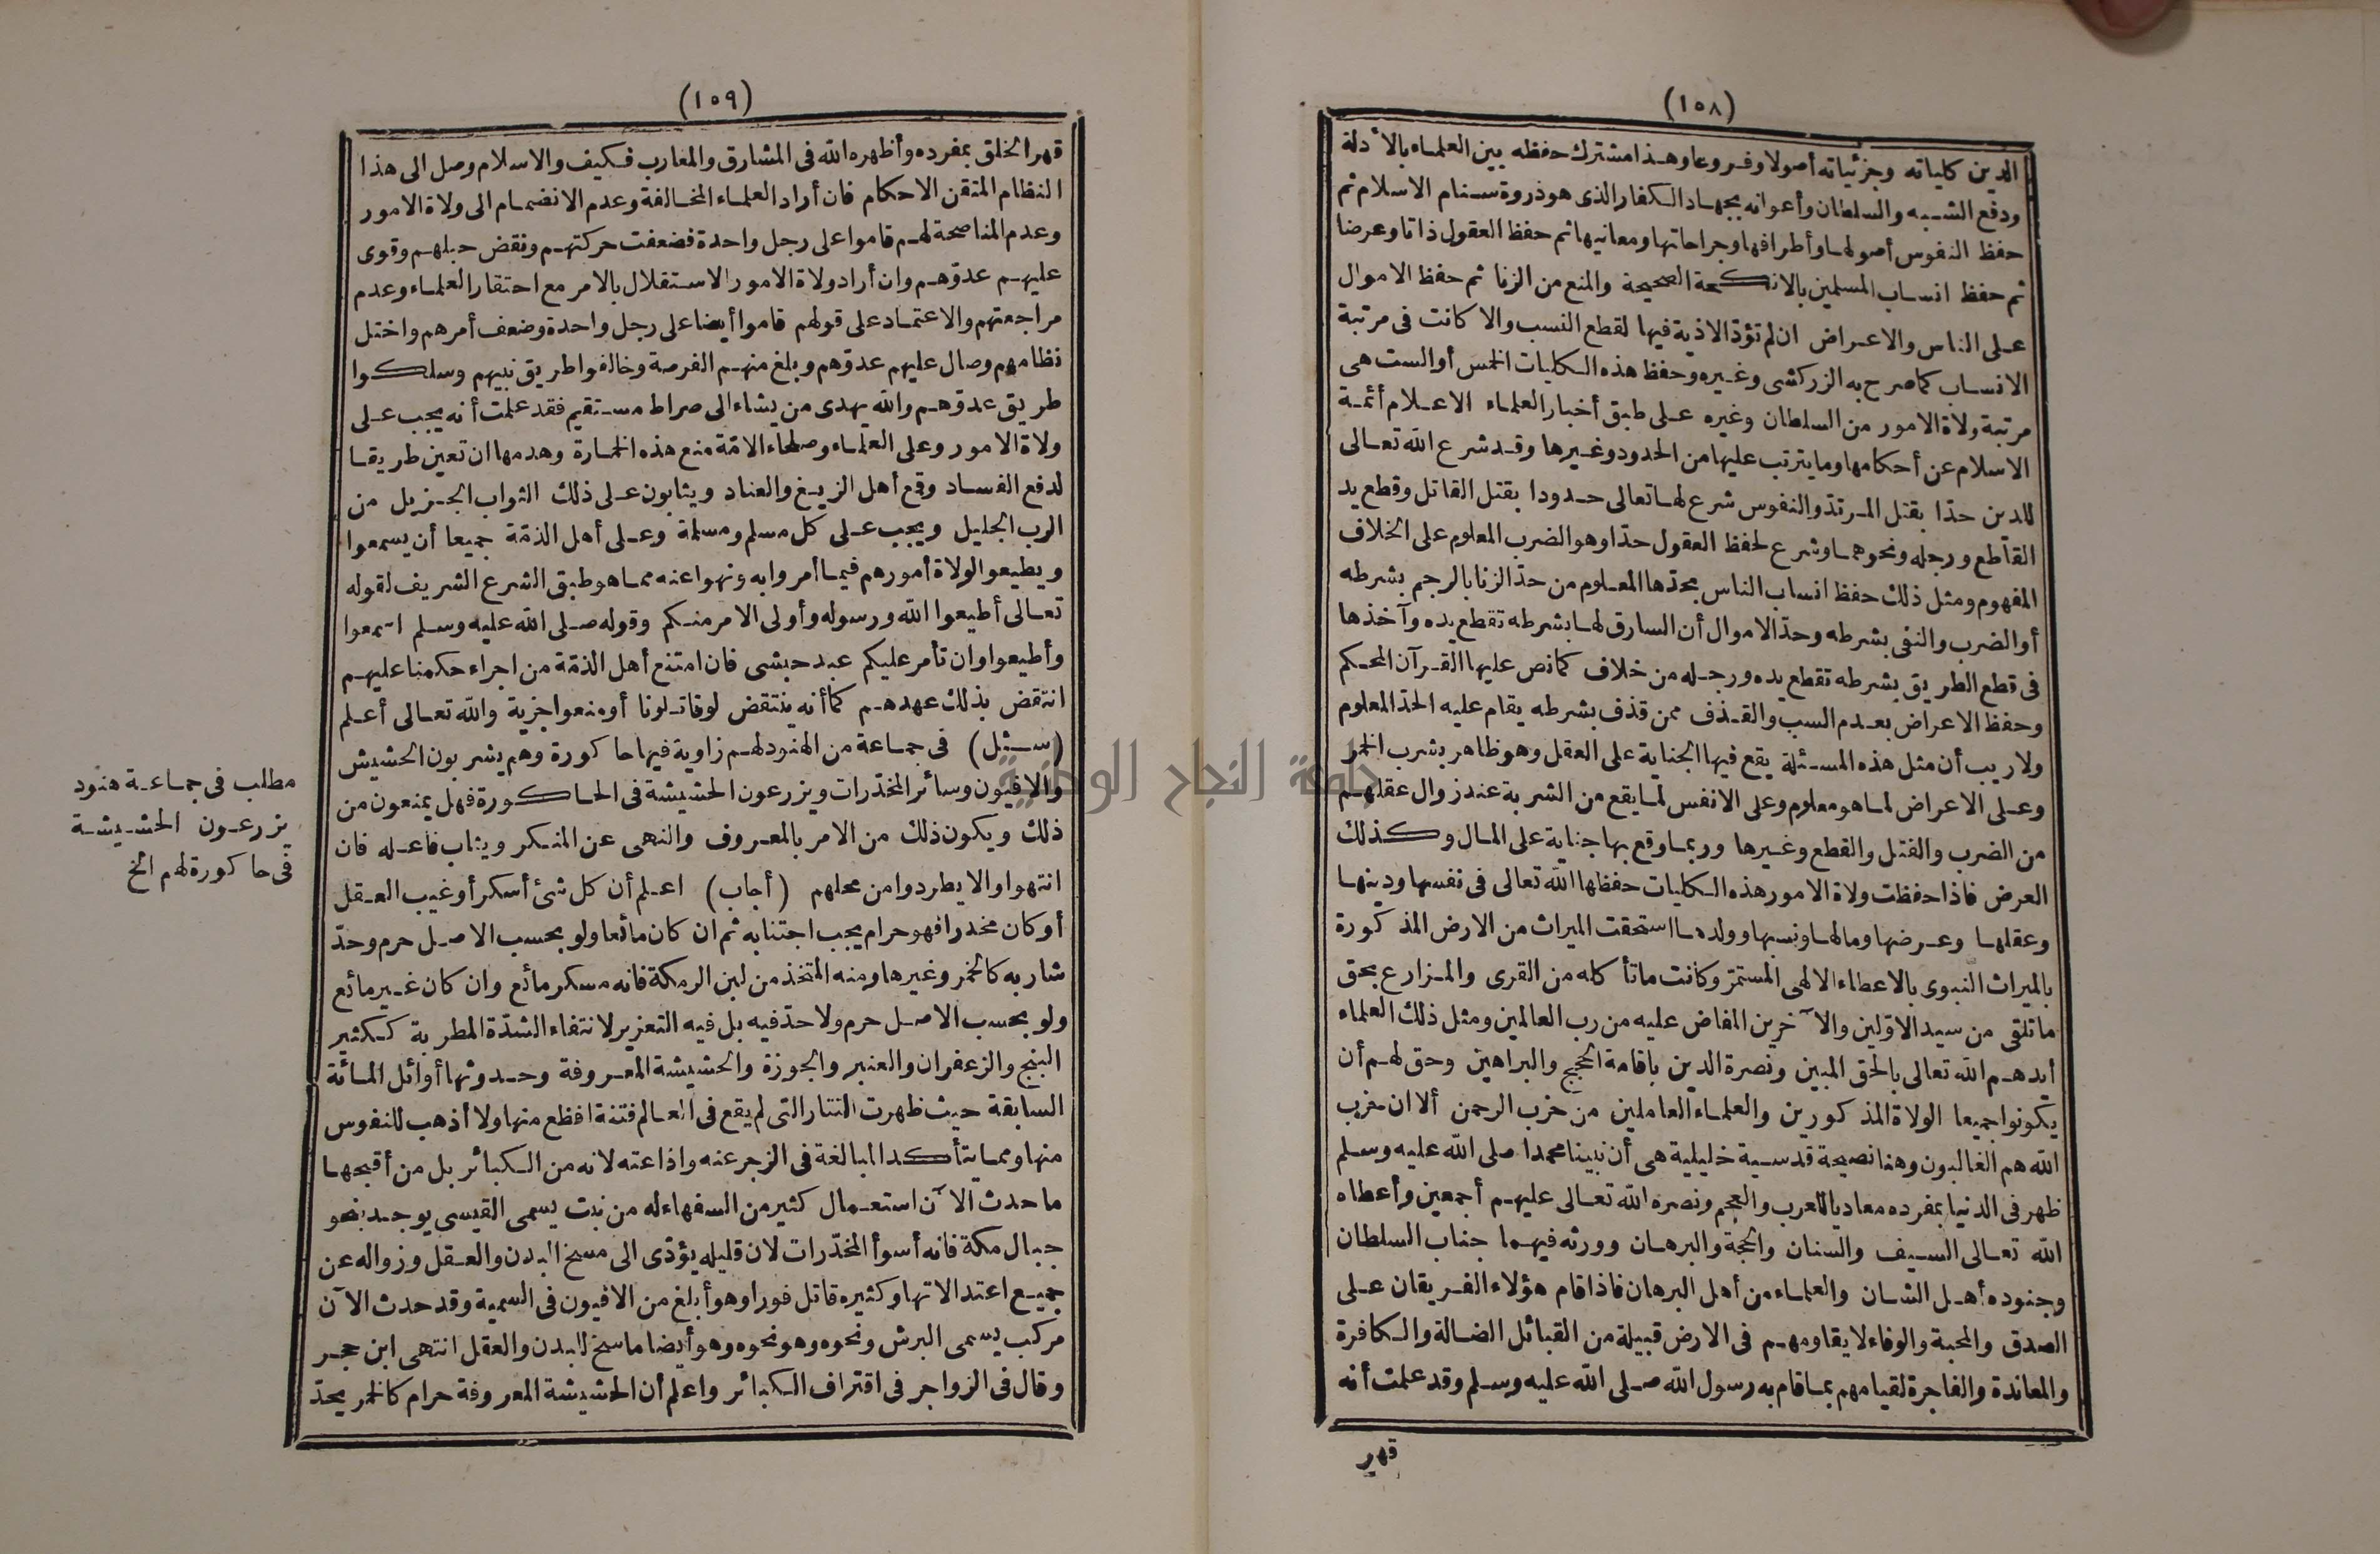 (١٠٨)
الدين كلياته وجزئياته أصولا وفروعا وهذا مشترك حفظه بين العلماء بالأدلة
ودفع الشبه والسلطان وأعوانه بجهاد الكفار الذى هو ذروة سنام الاسلام ثم
حفظ النفوس أصولها وأطرافها وجراحاتها ومعانيها ثم حفظ العقول ذاتا وعرضا
ثم حفظ انساب المسلمين بالانكحة الصحيحة والمنع من الزنا ثم حفظ الاموال
على الناس والاعراض ان لم تؤد الاذية فيها لقطع النسب والا كانت فى مرتبة
الانساب كما صرح به الزركشى وغيره وحفظ هذه الكليات الخمس أو الست هى
مرتبة ولاة الامور من السلطان وغيره على طبق أخبار العلماء الاعلام أئمة
الاسلام عن أحكامها وما يترتب عليها من الحدود وغيرها وقد شرع الله تعالى
للدين حدّا بقتل المرتدّ والنفوس شرع لها تعالى حدودا بقتل القاتل وقطع يد
القاطع ورجله ونحوهما وشرع لحفظ العقول حدّا وهو الضرب المعلوم على الخلاف
المفهوم ومثل ذلك حفظ انساب الناس بحدّها المعلوم من حدّ الزنا بالرجم بشرطه
أو الضرب والنفى بشرطه وحدّ الاموال أن السارق لها بشرطه تقطع يده وآخذها
فى قطع الطريق بشرطه تقطع يده ورجله من خلاف كما نص عليها القرآن المحكم
وحفظ الاعراض بعدم السب والقذف ممن قذف بشرطه يقام عليه الحدّ المعلوم
ولا ريب أن مثل هذه المسئلة يقع فيها الجناية على العقل وهو ظاهر بشرب الخمر
وعلى الاعراض لما هو معلوم وعلى الانفس لما يقع من الشربة عند زوال عقلهم
من الضرب والقتل والقطع وغيرها وربما وقع بها جناية على المال وكذلك
العرض فاذا حفظت ولاة الامور هذه الكليات حفظها الله تعالى فى نفسها ودينها
وعقلها وعرضها ومالها ونسبها وولدها استحقت الميراث من الارض المذكورة
بالميراث النبوى بالاعطاء الالهى المستمرّ وكانت ما تأكله من القرى والمزارع بحق
ما تلقى من سيد الاوّلين والآخرين المفاض عليه من رب العالمين ومثل ذلك العلماء
أيدهم الله تعالى بالحق المبين ونصرة الدين باقامة الحجج والبراهين وحق لهم أن
يكونوا جميعا الولاة المذكورين والعلماء العاملين من حزب الرحمن ألا ان حزب
الله هم الغالبون وهنا نصيحة قدسية خليلية هى أن نبينا محمدا صلى الله عليه وسلم
ظهر فى الدنيا بمفرده معاديا للعرب والعجم ونصره الله تعالى عليهم أجمعين وأعطاه
الله تعالى السيف والسنان والحجة والبرهان وورثه فيهما جناب السلطان
وجنوده أهل الشان والعلماء من أهل البرهان فاذا قام هؤلاء الفريقان على
الصدق والمحبة والوفاء لا يقاومهم فى الارض قبيلة من القبائل الضالة والكافرة
والمعاندة والفاجرة لقيامهم بما قام به رسول الله صلى الله عليه وسلم وقد علمت أنه
قهر
(١٠٩)
قهر الخلق بمفرده وأظهره الله فى المشارق والمغارب فكيف والاسلام وصل الى هذا
النظام المتقن الاحكام فان أراد العلماء المخالفة وعدم الانضمام الى ولاة الامور
وعدم المناصحة لهم قاموا على رجل واحدة فضعفت حركتهم ونقض حبلهم وقوى
عليهم عدوّهم وان أراد ولاة الامور الاستقلال بالامر مع احتقار العلماء وعدم
مراجعتهم والاعتماد على قولهم قاموا أيضا على رجل واحدة وضعف أمرهم واختل
نظامهم وصال عليهم عدوّهم وبلغ منهم الفرصة وخالفوا طريق نبيهم وسلكوا
طريق عدوّهم والله يهدى من يشاء الى صراط مستقيم فقد علمت أنه يجب على
ولاة الامور وعلى العلماء وصلحاء الامّة منع هذه الخمارة وهدمها ان تعين طريقا
لدفع الفساد وقمع أهل الزيغ والعناد ويثابون على ذلك الثواب الجزيل من
الرب الجليل ويجب على كل مسلم ومسلمة وعلى أهل الذمّة جميعا أن يسمعوا
ويطيعوا لولاة أمورهم فيما أمروا به ونهوا عنه مما هو طبق الشرع الشريف لقوله
تعالى أطيعوا الله ورسوله وأولى الامر منكم وقوله صلى الله عليه وسلم اسمعوا
وأطيعوا وان تأمر عليكم عبد حبشى فان امتنع أهل الذمّة من اجراء حكمنا عليهم
انتقض بذلك عهدهم كما أنه ينتقض لو قاتلونا أو منعوا جزية والله تعالى أعلم
(سئل) فى جماعة من الهنود لهم زاوية فيها حاكورة وهم يشربون الحشيش
والافيون وسائر المخدّرات ويزرعون الحشيشة فى الحاكورة فهل يمنعون من
ذلك ويكون ذلك من الامر بالمعروف والنهى عن المنكر ويثاب فاعله فان
انتهوا والا يطردوا من محلهم (أجاب) اعلم أن كل شئ أسكر أو غيب العقل
أو كان مخدرا فهو حرام يجب اجتنابه ثم ان كان مائعا ولو بحسب الاصل حرم وحدّ
شاربه كالخمر وغيرها ومنه المتخذ من لبن الرمكة فانه مسكر مائع وان كان غير مائع
ولو بحسب الاصل حرم ولا حدّ فيه بل فيه التعزير لانتفاء الشدّة المطربة ككثير
البنج والزعفران والعنبر والجوزة والحشيشة المعروفة وحدوثها أوائل المائة
السابقة حيث ظهرت التتار التى لم يقع فى العالم فتنة افظع منها ولا أذهب للنفوس
منها ومما يتأكد المبالغة فى الزجر عنه واذاعته لانه من الكبائر بل من أقبحها
ما حدث الآن استعمال كثير من السفهاء له من نبت يسمى القيسى يوجد بنحو
جبال مكة فانه أسوأ المخدّرات لان قليله يؤدّى الى مسخ البدن والعقل وزواله عن
جميع اعتدالاتها وكثيره قاتل فورا وهو أبلغ من الافيون فى السمية وقد حدث الآن
مركب يسمى البرش ونحوه وهو نحوه وهو أيضا ماسخ للبدن والعقل انتهى ابن حجر
وقال فى الزواجر فى اقتراف الكبائر واعلم أن الحشيشة المعروفة حرام كالخمر يحدّ
مطلب فى جماعة هنود
يزرعون الحشيشة
فى حاكورة لهم الخ
جامعة النجاح الوطنية